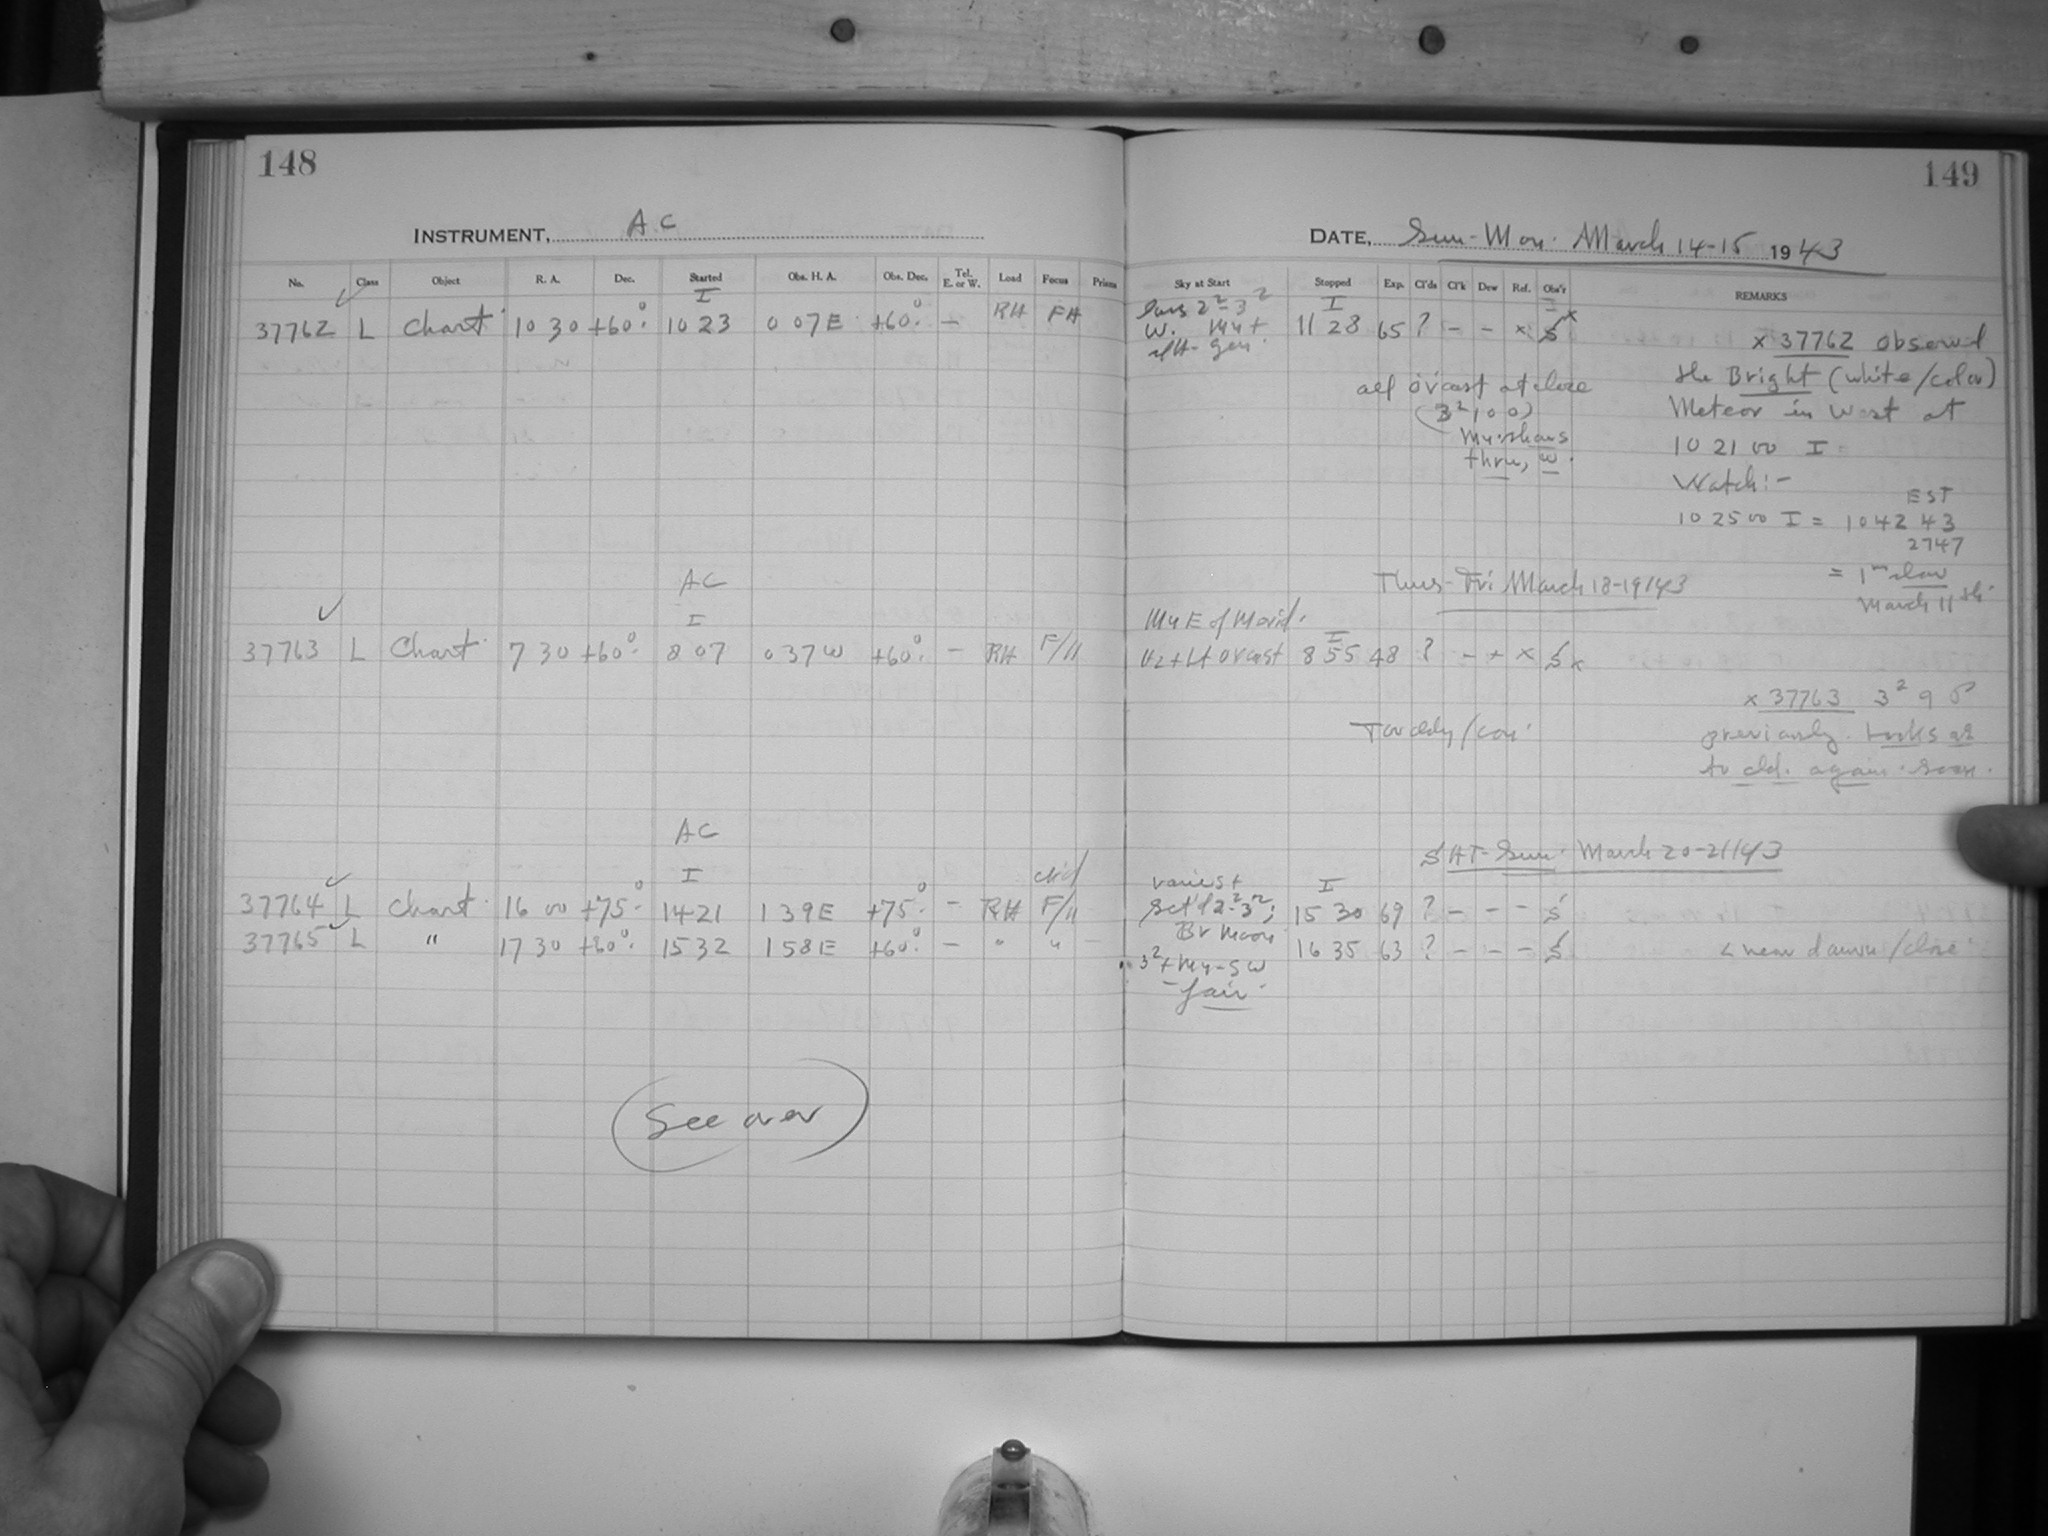 148
INSTRUMENT, AC
No. Class Object R. A. Dec. Started Obs. H. A. Obs. Dec. Tel. E. or W. Load Focus Prism
I
37762 L Chart 10 30 +60° 10 23 0 07 E +60° — RH FH
AC
I
37763 L Chart 7 30 +60° 8 07 0 37 W +60° — RH F/H
AC
I
37764 L Chart 16 00 +75° 14 21 1 39 E +75° — RH F/H
37765 L " 17 30 +60° 15 32 1 58 E +60° — " "
See over
149
DATE, Sun-Mon. March 14-15 1943
Sky at Start Stopped Exp. Cl'ds Cl'k Dew Ref. Obs'r REMARKS
I
W. 11 28 65 ? — — x S x
x 37762 observed
the Bright (white/color)
Meteor in West at
10 21 00 I
Watch:—
EST
10 25 00 I = 10 42 43
27 47
March 11th
all ovcast at close
(3² 100)
thru, W.
Thurs-Fri March 18-19/43
My E of Merid.
Hz + LH ovcast
I
8 55 48 ? — + x S x
x 37763 3² 9
previously. Looks as
to cld. again soon.
SAT-Sun. March 20-21/43
I
15 30 69 ? — — — S
Br Moon
16 35 63 ? — — — S
near dawn/close
3² + My-SW
— fair